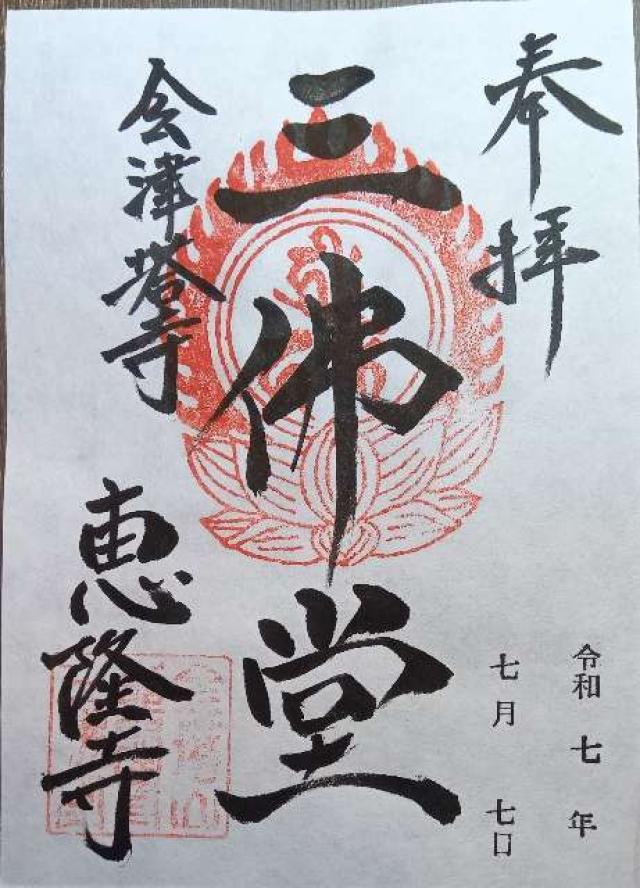 奉拝
令和七年
七月七日
三佛堂
会津塔寺
恵隆寺